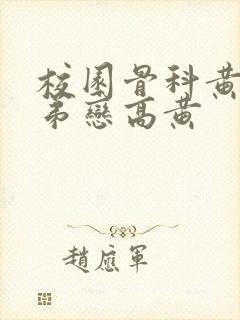 校園骨科黄
弟戀高黄
趙應軍